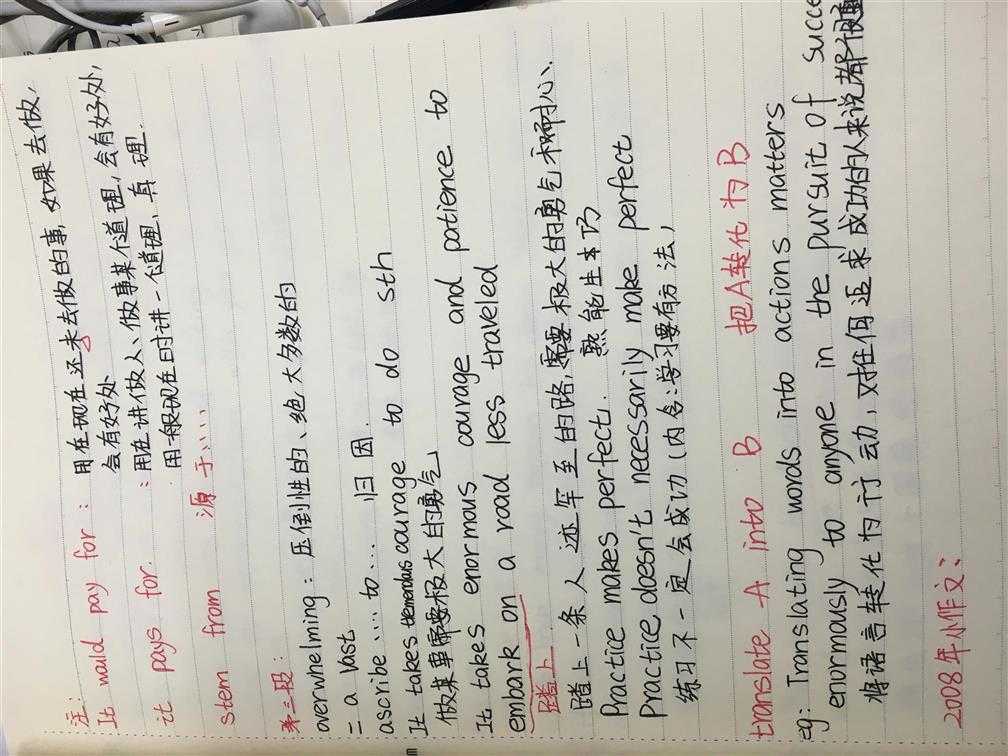 注:
It would pay for : 用在现在还未去做的事,如果去做,
会有好处
it pays for. : 用在讲做人、做事某个道理,会有好处,
用一般现在时讲一个道理,真理.
stem from 源于……
第三段:
overwhelming: 压倒性的、绝大多数的
= a vast
ascribe ….. to … 归因.
It takes tremendous courage to do sth
做某事需要极大的勇气
It takes enormous courage and patience to
embark on a road less traveled
踏上
踏上一条人迹罕至的路,需要极大的勇气和耐心.
Practice makes perfect. 熟能生巧
Practice doesn't necessarily make perfect
练习不一定会成功(内含:学习要有方法)
translate A into B 把A转化为B
eg: Translating words into actions matters
enormously to anyone in the pursuit of succe
将语言转化为行动,对任何追求成功的人来说都很
2008年小作文: